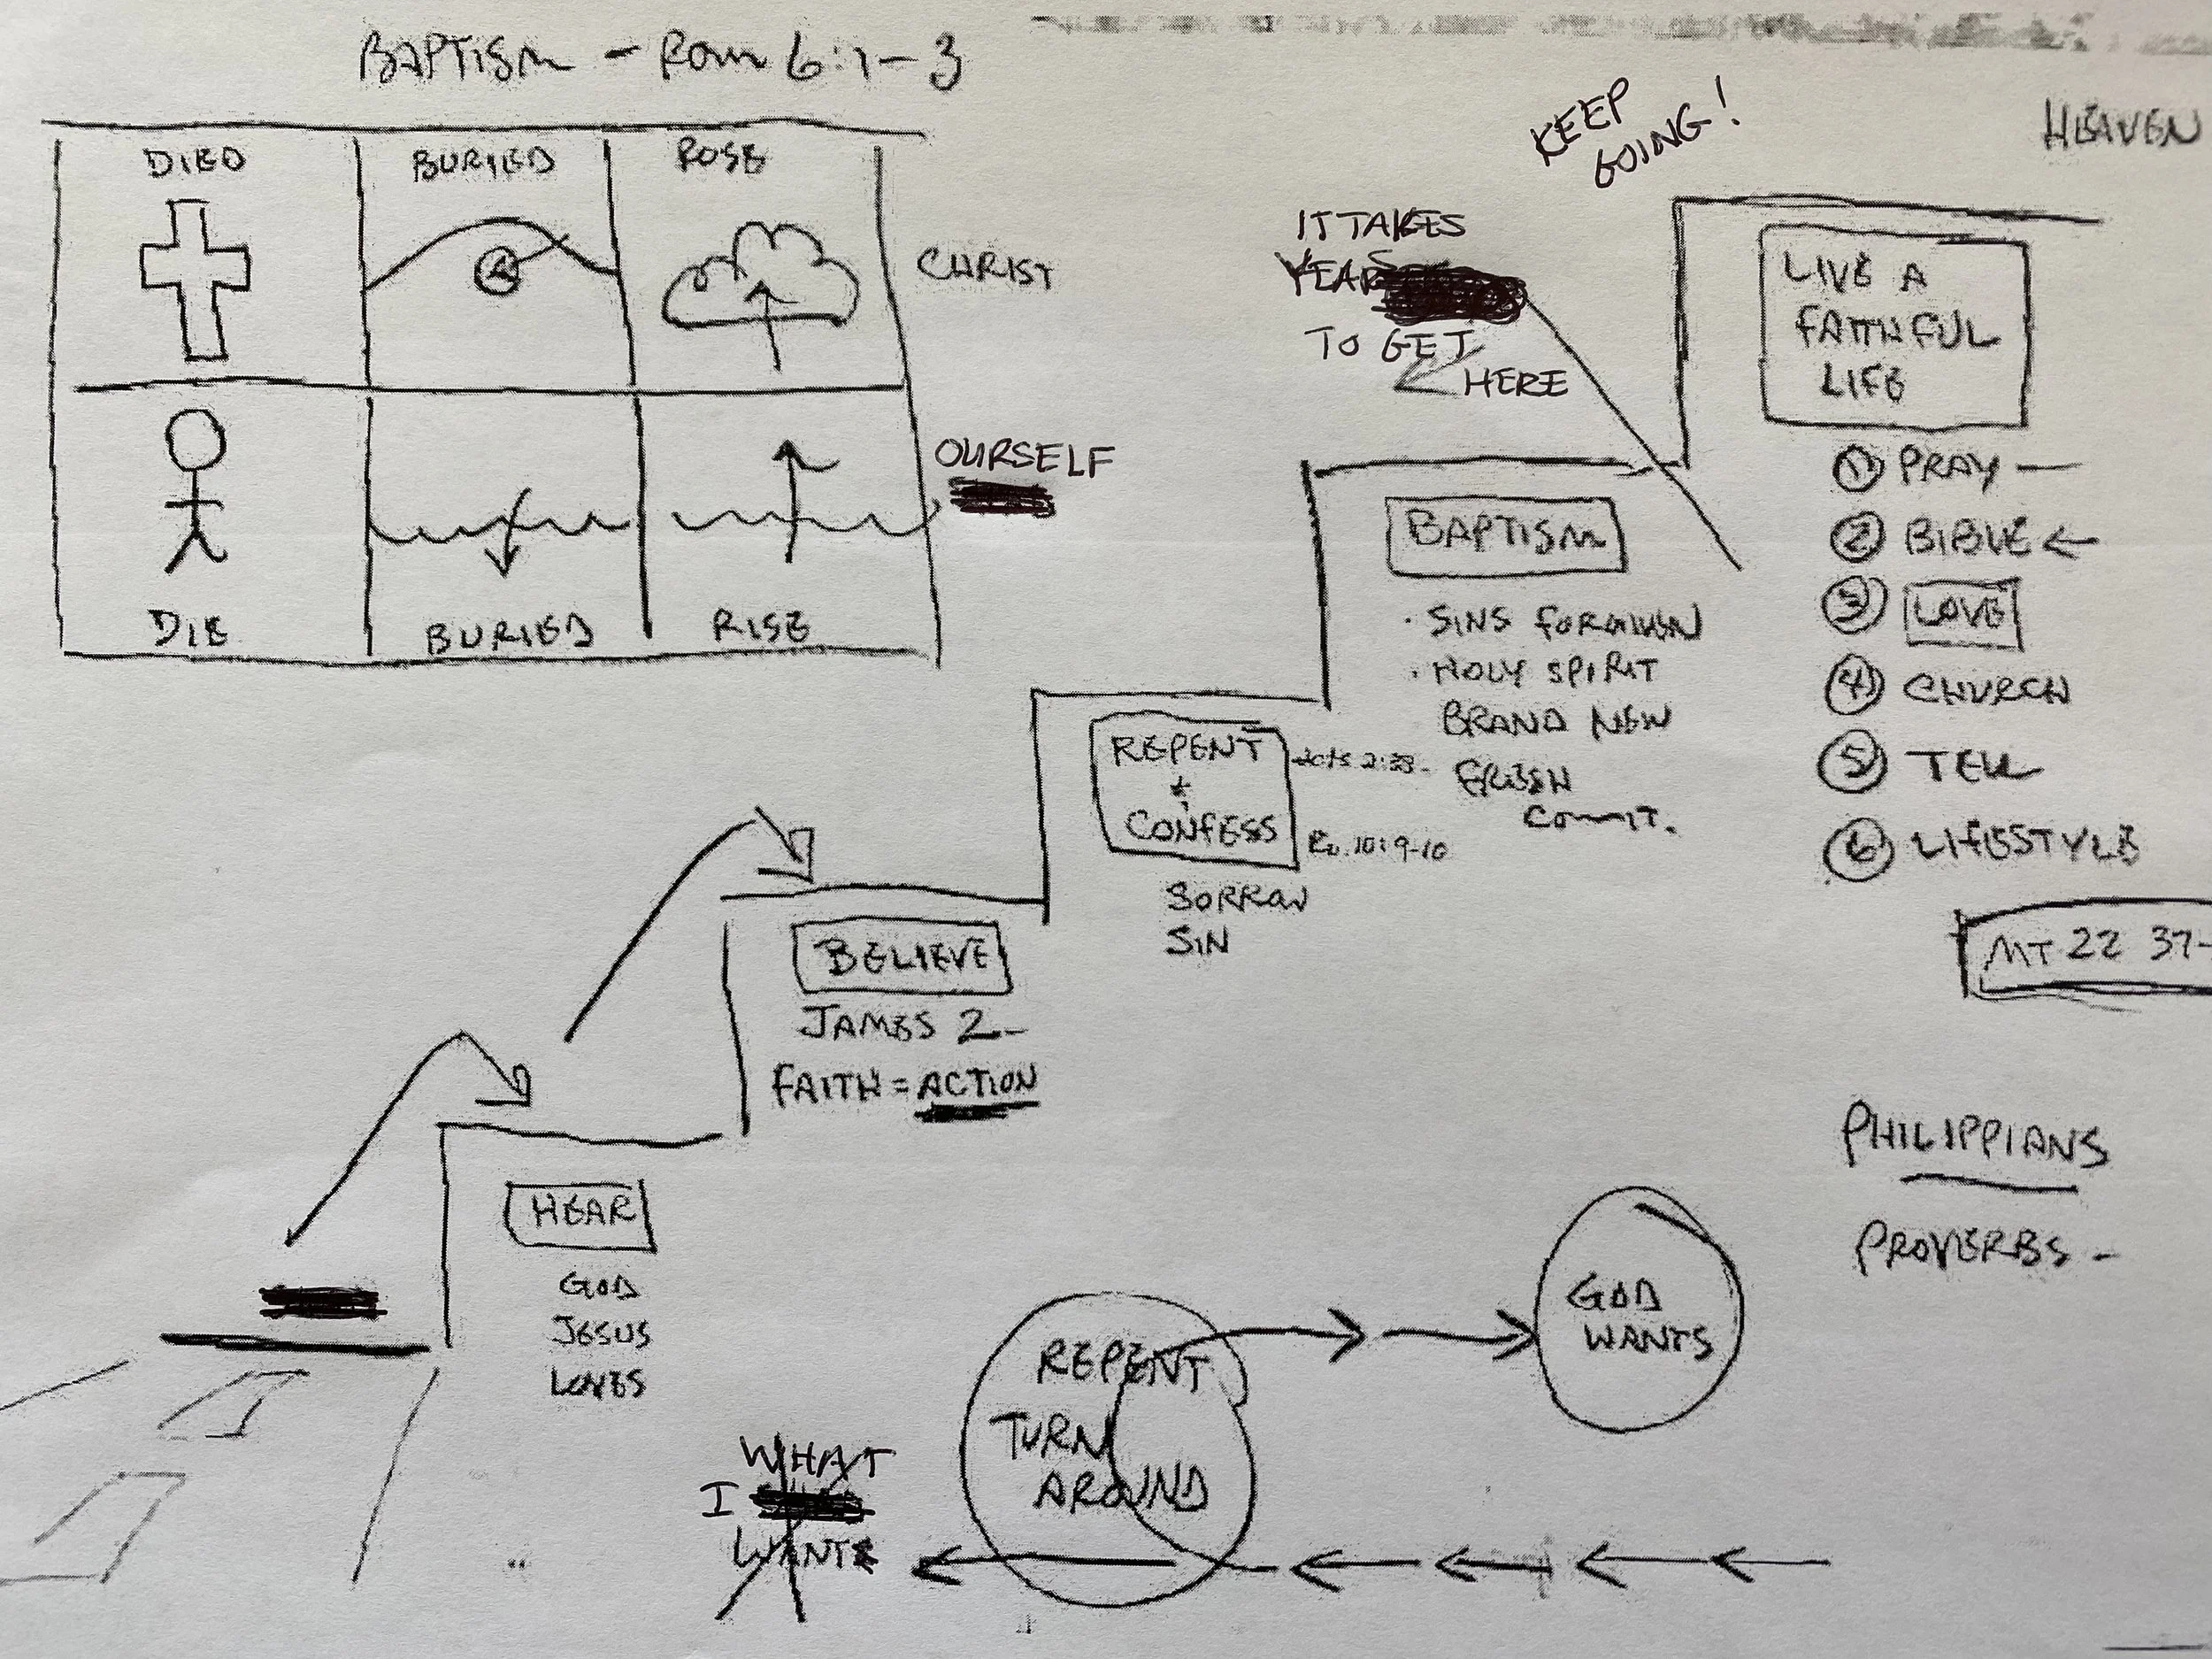 BAPTISM - Rom 6:1-3
DIED
BURIED
ROSE
CHRIST
OURSELF
DIE
BURIED
RISE
KEEP
GOING!
HEAVEN
IT TAKES
YEARS
TO GET
HERE
LIVE A
FAITHFUL
LIFE
① PRAY —
② BIBLE ←
③ LOVE
④ CHURCH
⑤ TELL
⑥ LIFESTYLE
MT 22 37-
BAPTISM
· SINS FORGIVEN
· HOLY SPIRIT
BRAND NEW
FRESH
COMMIT.
REPENT
+
CONFESS
Acts 2:38-
Ro. 10:9-10
SORROW
SIN
BELIEVE
JAMES 2-
FAITH = ACTION
HEAR
GOD
JESUS
LOVES
PHILIPPIANS
PROVERBS -
GOD
WANTS
REPENT
TURN
AROUND
WHAT
I
WANT